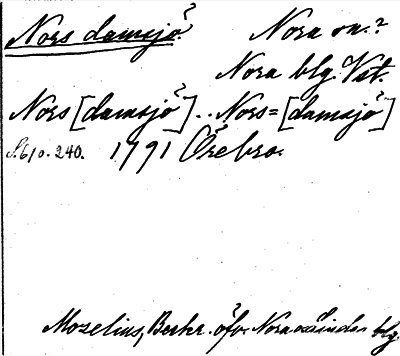 Nors damsjö Nora sn.?
Nora blg Vstm.
Nors [damsjö]. Nors= [damsjö]
S. 610. 240. 1791 Örebro.
Mozelius, Berkr. öfv. Nora blg.